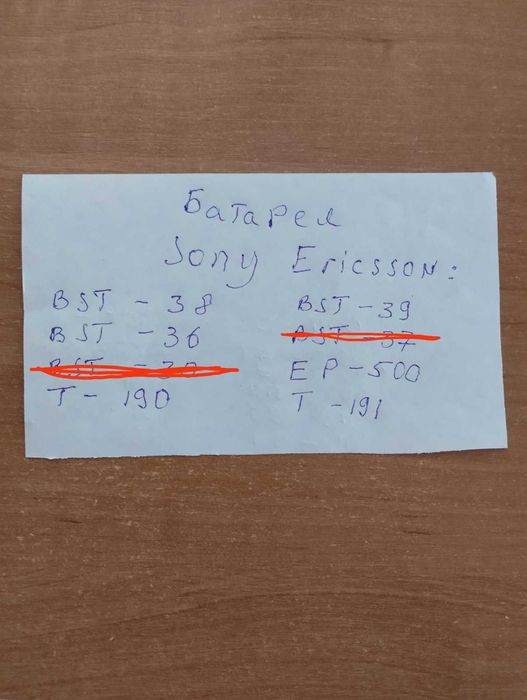 Батареї
Sony Ericsson:
BST - 38 BST - 39
BST - 36 BST - 37
BST EP - 500
T - 190 T - 191